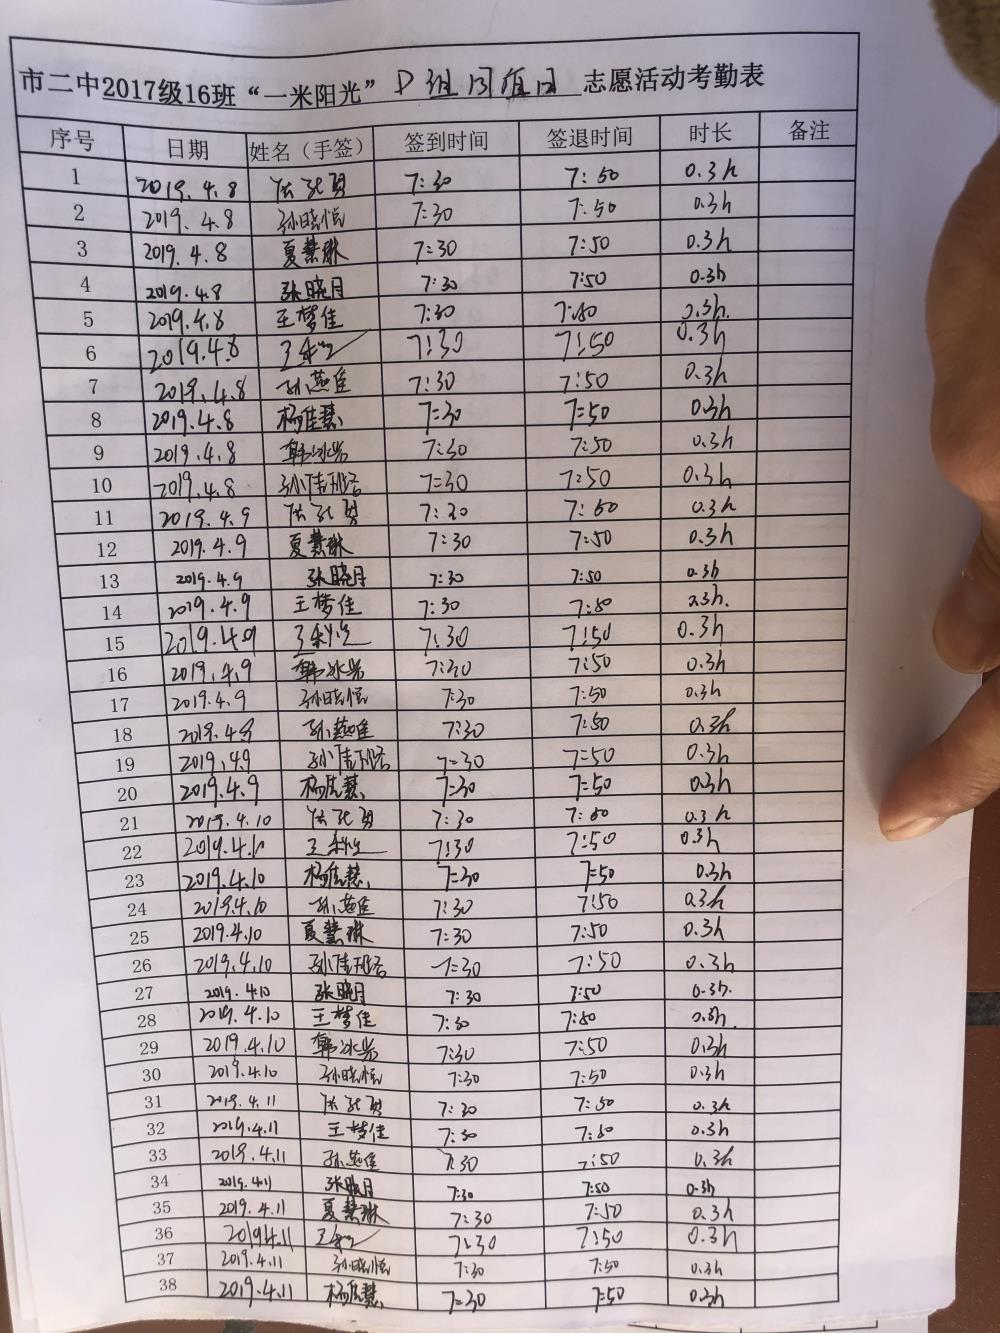 市二中2017级16班“一米阳光” D组周值日 志愿活动考勤表
序号 日期 姓名（手签） 签到时间 签退时间 时长 备注
1 2019.4.8 7:30 7:50 0.3h
2 2019.4.8 孙晓悦 7:30 7:50 0.3h
3 2019.4.8 夏慧琳 7:30 7:50 0.3h
4 2019.4.8 张晓月 7:30 7:50 0.3h
5 2019.4.8 王梦佳 7:30 7:50 0.3h.
6 2019.4.8 7:30 7:50 0.3h
7 2019.4.8 孙燕佳 7:30 7:50 0.3h
8 2019.4.8 杨佳慧 7=30 7=50 0.3h
9 2019.4.8 韩冰岩 7:30 7:50 0.3h
10 2019.4.8 孙倩 7=30 7=50 0.3h
11 2019.4.9 7:30 7:50 0.3h
12 2019.4.9 夏慧琳 7:30 7:50 0.3h
13 2019.4.9 张晓月 7:30 7:50 0.3h
14 2019.4.9 王梦佳 7:30 7:50 0.3h.
15 2019.4.9 7:30 7:50 0.3h
16 2019.4.9 韩冰岩 7:30 7:50 0.3h
17 2019.4.9 孙晓悦 7:30 7:50 0.3h
18 2019.4.9 孙燕佳 7:30 7:50 0.3h
19 2019.4.9 孙倩 7=30 7=50 0.3h
20 2019.4.9 杨佳慧 7=30 7=50 0.3h
21 2019.4.10 7:30 7:50 0.3h
22 2019.4.10 7:30 7:50 0.3h
23 2019.4.10 杨佳慧 7=30 7=50 0.3h
24 2019.4.10 孙燕佳 7:30 7:50 0.3h
25 2019.4.10 夏慧琳 7:30 7:50 0.3h
26 2019.4.10 孙倩 7=30 7:50 0.3h
27 2019.4.10 张晓月 7:30 7:50 0.3h.
28 2019.4.10 王梦佳 7:30 7:50 0.3h.
29 2019.4.10 韩冰岩 7:30 7:50 0.3h
30 2019.4.10 孙晓悦 7:30 7:50 0.3h
31 2019.4.11 7:30 7:50 0.3h
32 2019.4.11 王梦佳 7:30 7:50 0.3h
33 2019.4.11 孙燕佳 7:30 7:50 0.3h
34 2019.4.11 张晓月 7:30 7:50 0.3h
35 2019.4.11 夏慧琳 7:30 7:50 0.3h
36 2019.4.11 7:30 7:50 0.3h
37 2019.4.11 孙晓悦 7:30 7:50 0.3h
38 2019.4.11 杨佳慧 7=30 7=50 0.3h